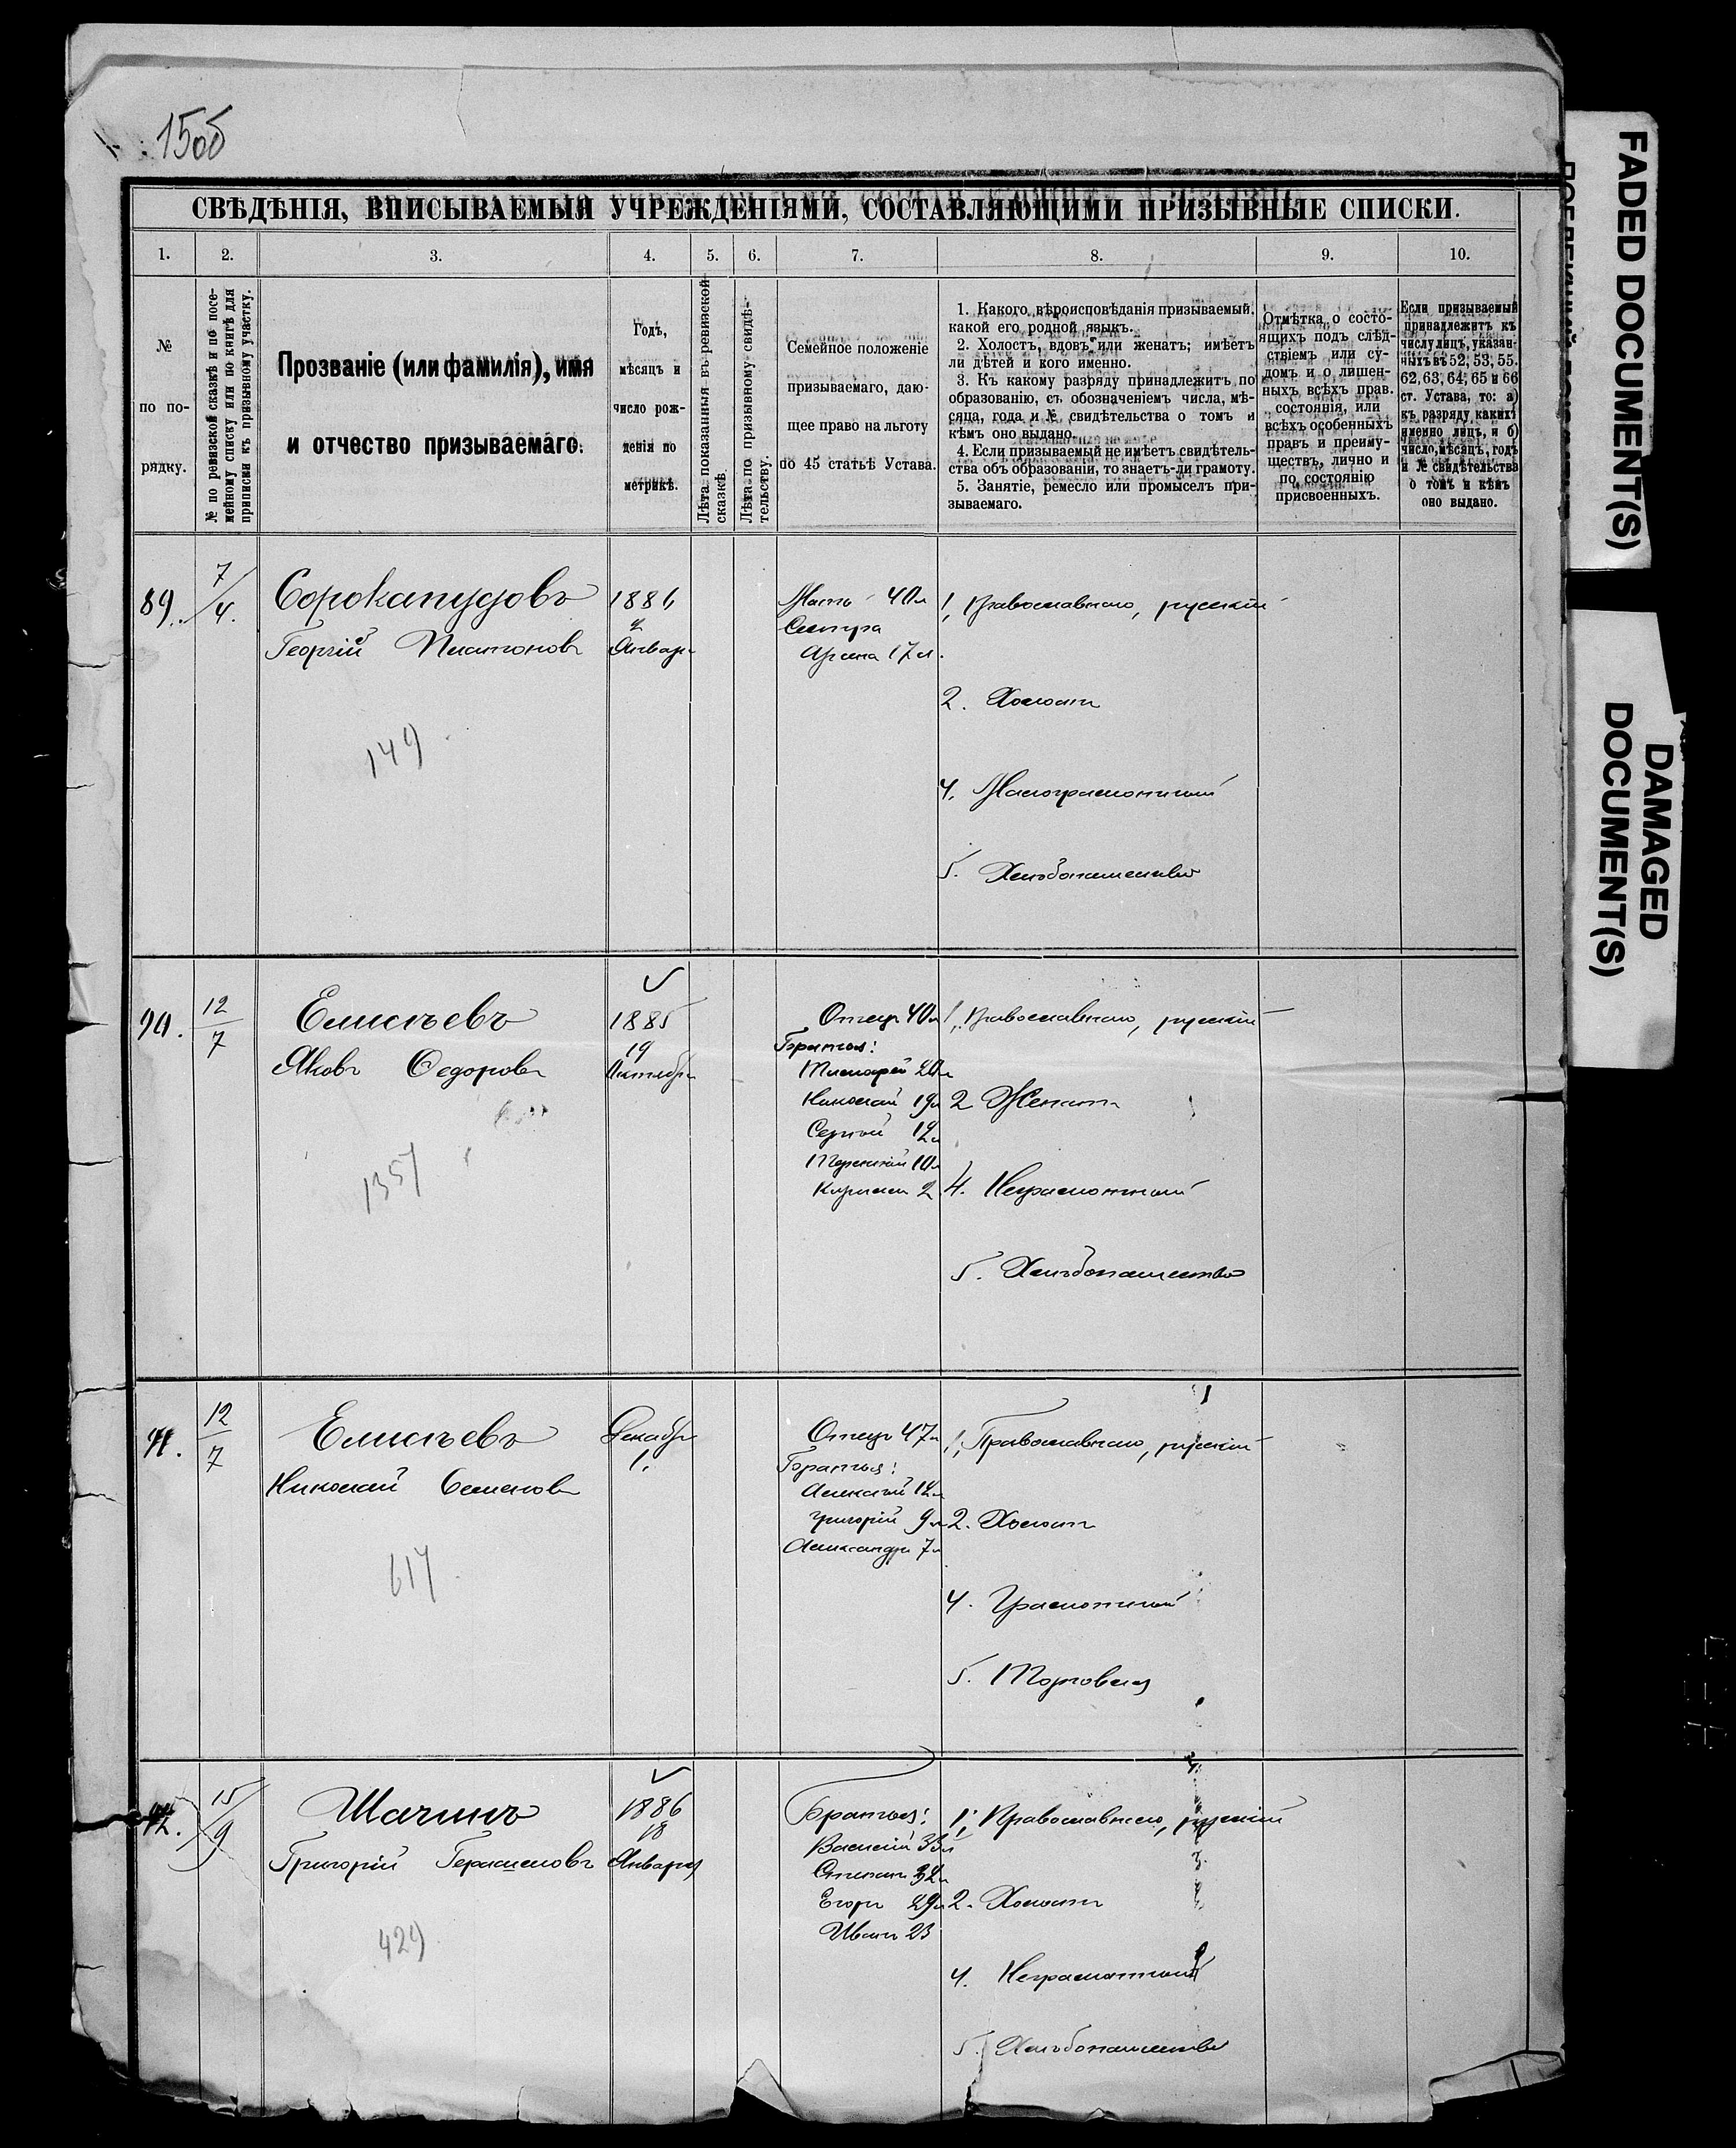 150б
СВѢДѢНІЯ, ВПИСЫВАЕМЫЯ УЧРЕЖДЕНІЯМИ, СОСТАВЛЯЮЩИМИ ПРИЗЫВНЫЕ СПИСКИ.
1. 2. 3. 4. 5. 6. 7. 8. 9. 10.
№
по по-
рядку.
№ по ревизской сказкѣ и по посе-
мейному списку или по книгѣ для
приписки къ призывному участку.
Прозваніе (или фамилія), имя
и отчество призываемаго.
Годъ,
мѣсяцъ и
число рож-
денія по
метрикѣ.
Лѣта показанныя въ ревизской
сказкѣ.
Лѣта по призывному свидѣ-
тельству.
Семейное положеніе
призываемаго, даю-
щее право на льготу
по 45 статьѣ Устава.
1. Какого вѣроисповѣданія призываемый,
какой его родной языкъ.
2. Холостъ, вдовъ или женатъ; имѣетъ
ли дѣтей и кого именно.
3. Къ какому разряду принадлежитъ по
образованію, съ обозначеніемъ числа, мѣ-
сяца, года и № свидѣтельства о томъ и
кѣмъ оно выдано.
4. Если призываемый не имѣетъ свидѣтель-
ства объ образованіи, то знаетъ-ли грамоту.
5. Занятіе, ремесло или промыселъ при-
зываемаго.
Отмѣтка о состо-
ящихъ подъ слѣд-
ствіемъ или су-
домъ и о лишен-
ныхъ всѣхъ прав.
состоянія, или
всѣхъ особенныхъ
правъ и преиму-
ществъ, лично и
по состоянію
присвоенныхъ.
Если призываемый
принадлежитъ къ
числу лицъ, указан-
ныхъ въ 52, 53, 55.
62, 63, 64, 65 и 66
ст. Устава, то: а)
къ разряду какихъ
именно лицъ, и б)
число, мѣсяцъ, годъ
и № свидѣтельства
о томъ и кѣмъ
оно выдано.
89.
7/4.
Сорокапудовъ
Георгій Платоновъ
149
1886
2
Январ
Мать 40л
Сестра
Арина 17л.
1, Православнаго, русскій
2. Холостъ
4. Малограмотный
5. Хлѣбопашество
90.
12
7
Елисѣевъ
Яковъ Федоровъ
1357
1885
19
Октября
Отецъ 40л
Братья:
Тимофей 20л
Николай 19л
Сергѣй 12л
Терентій 10л
Кирилл 2
1, Православнаго, русскій
2 Женатъ
4. Неграмотный
5. Хлѣбопашество
91.
12
7
Елисѣевъ
Николай Семеновъ
617
Декабря
1.
Отецъ 47л
Братья:
Алексѣй 12л
Григорій 9л
Александръ 7л
1, Православнаго, русскій
2. Холостъ
4. Грамотный
5. Торговля
92.
15/9
Шачинъ
Григорій Герасимовъ
429
1886
18
Января
Братья:
Василій 33л
Степанъ 32л
Егоръ 29л
Иванъ 23
1; Православнаго, русскій
2. Холостъ
4. Неграмотный
5. Хлѣбопашество
FADED DOCUMENT(S)
DAMAGED
DOCUMENT(S)